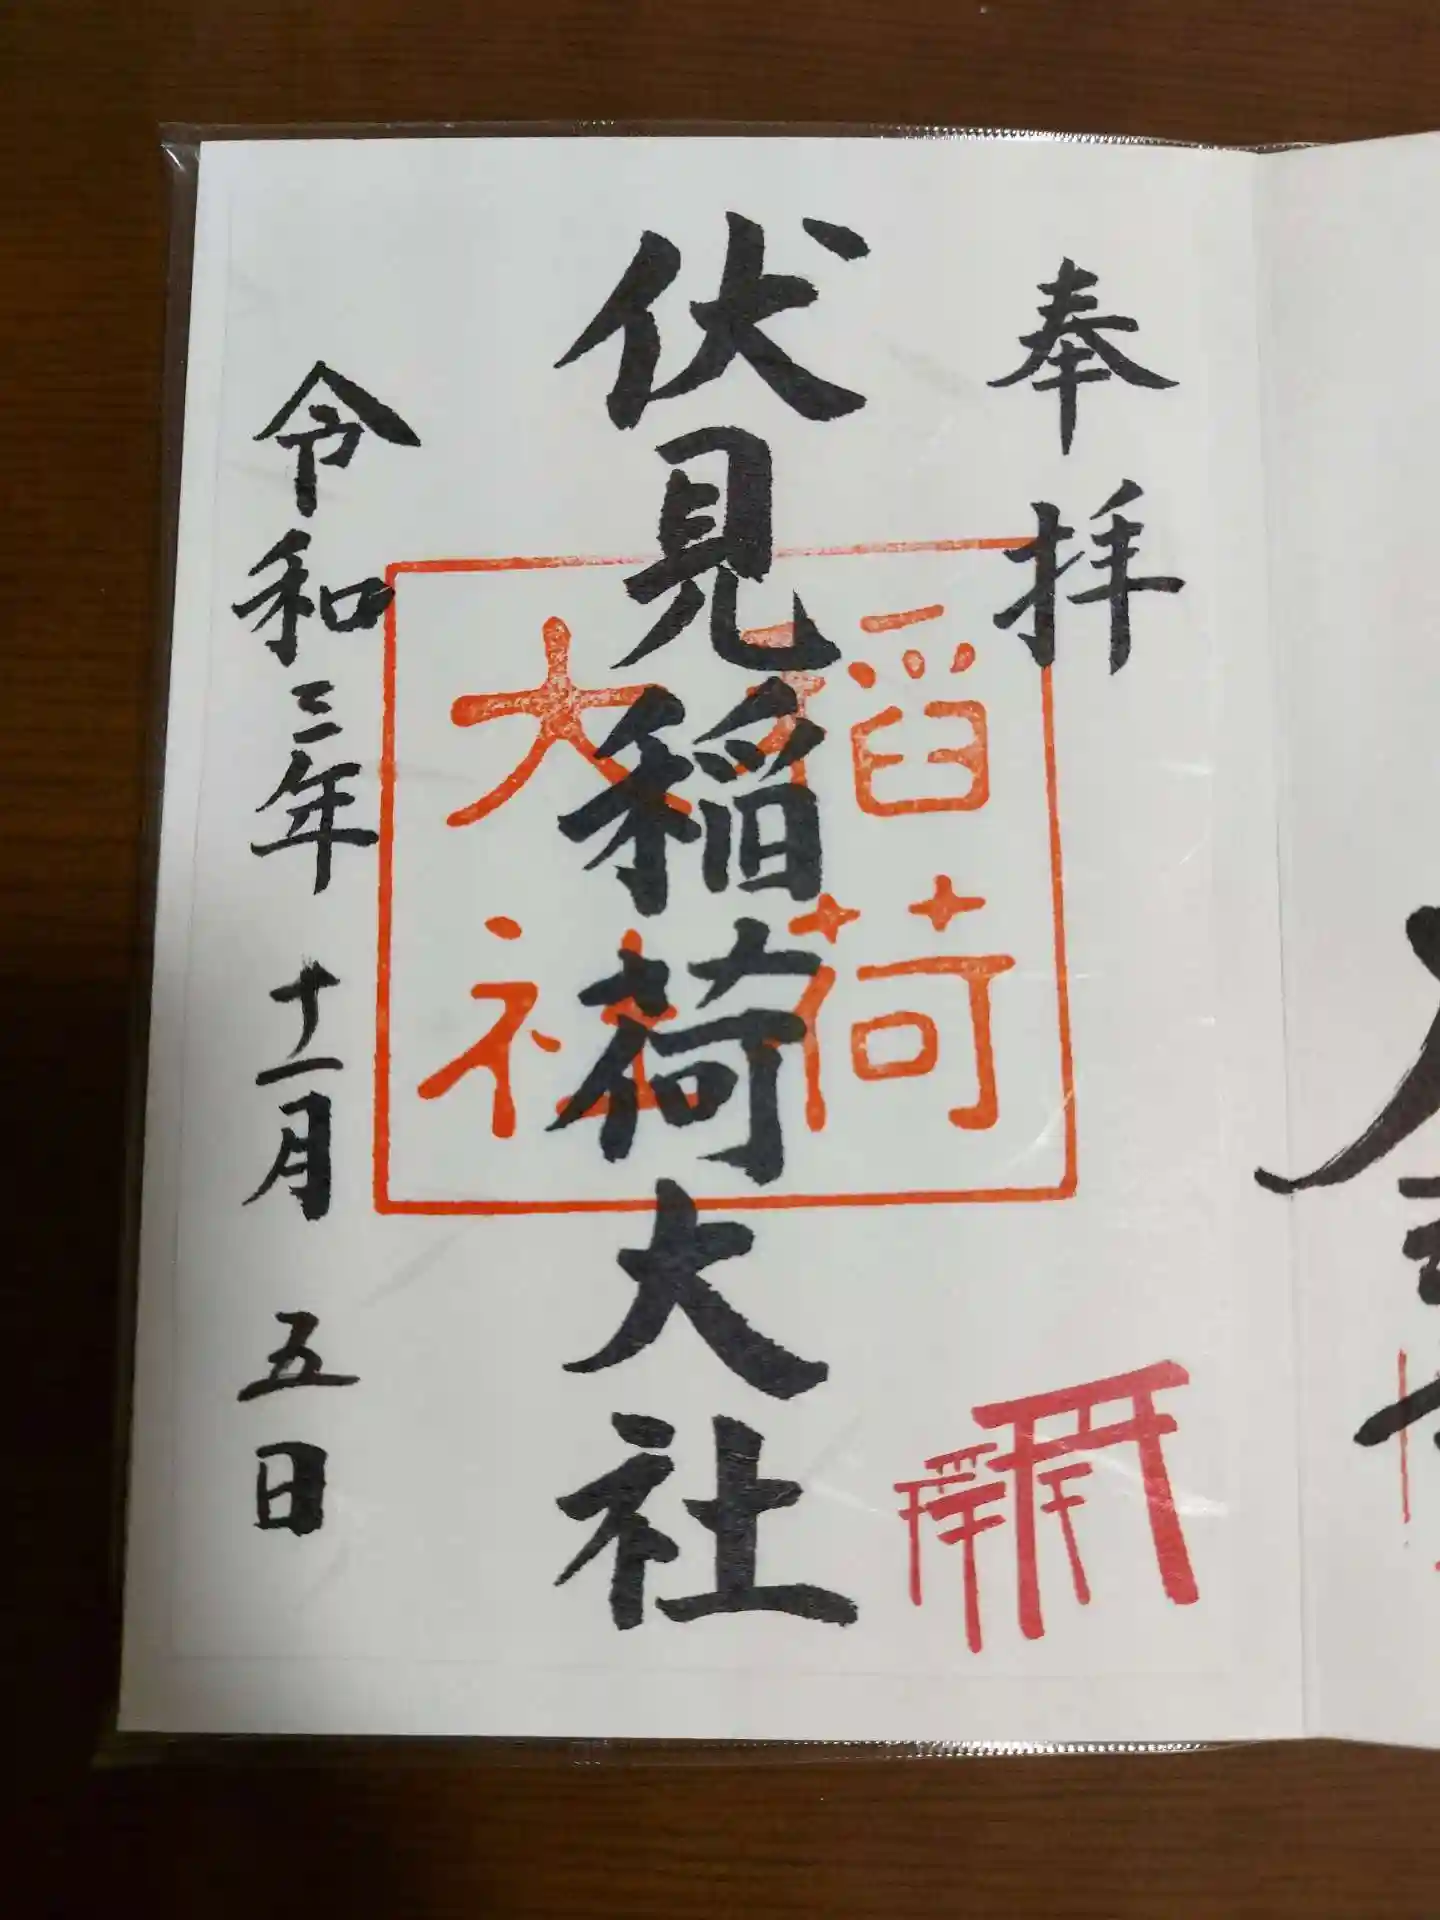 奉拝
伏見稲荷大社
稲荷
大社
令和三年十一月五日